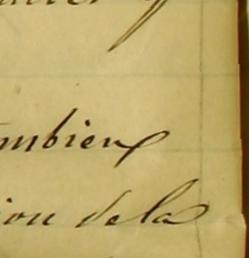 mbien
ion de la